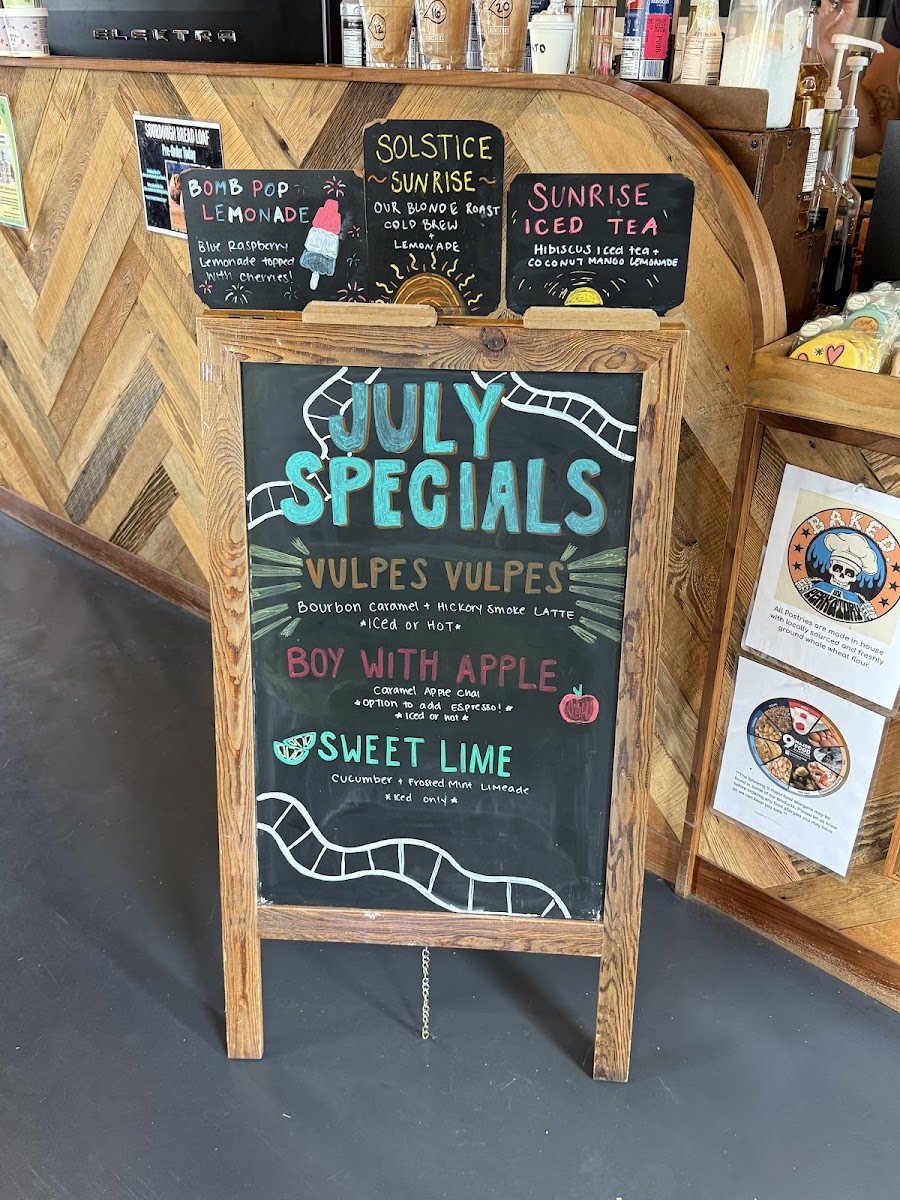 ELEKTRA
12
16
20
TO
SOURDOUGH BREAD LOAF
Pre-Order Today
BOMB POP
LEMONADE
Blue Raspberry
Lemonade topped
with cherries!
SOLSTICE
~SUNRISE~
OUR BLONDE ROAST
COLD BREW
+
LEMONADE
SUNRISE
ICED TEA
Hibiscus Iced tea +
COCONUT MANGO LEMONADE
JULY
SPECIALS
VULPES VULPES
Bourbon Caramel + Hickory Smoke LATTE
*ICED or HOT*
BOY WITH APPLE
Caramel Apple Chai
*OPTION to add ESPRESSO!*
*Iced or hot*
SWEET LIME
CUCUMBER + Frosted Mint LIMEADE
*Iced only*
BAKED
All Pastries are made in house
with locally sourced and freshly
ground whole wheat flour.
9 MAJOR
FOOD